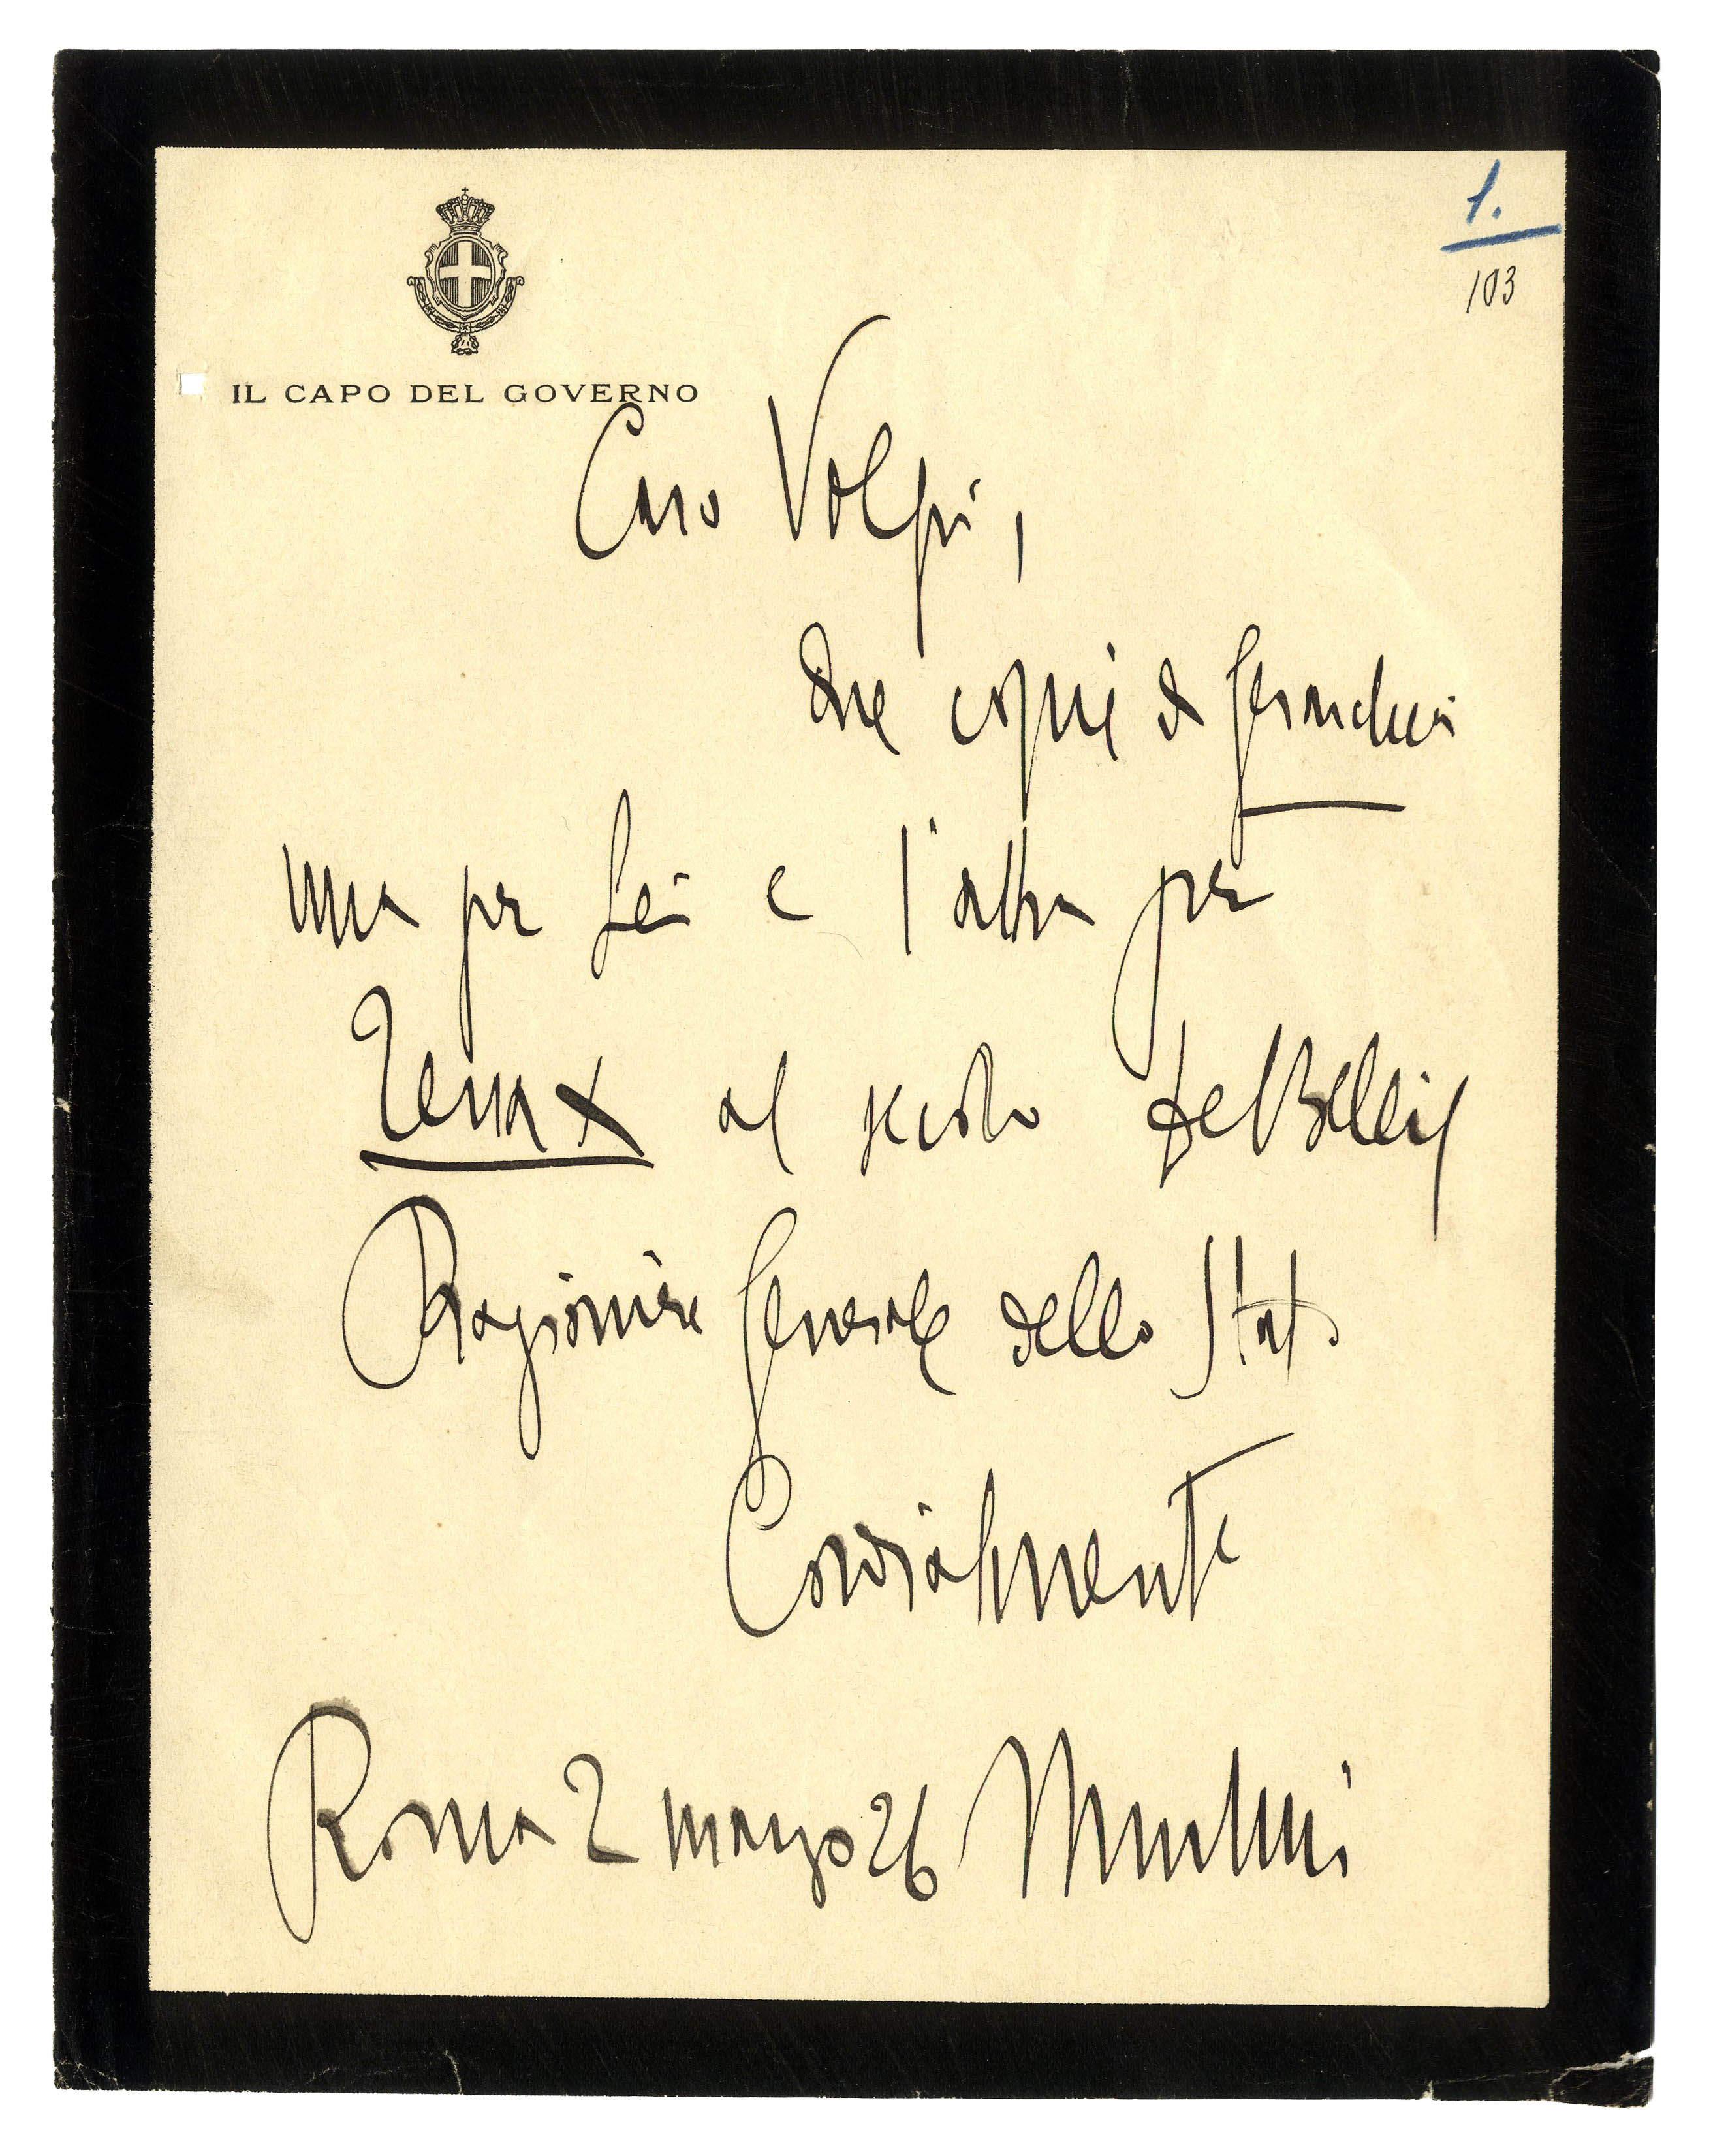 1.
103
IL CAPO DEL GOVERNO
Caro Volpi,
due copie di Gerarchia
una per Lei e l'altra per
Tenax al secolo De Bellis
Ragioniere Generale dello Stato
Cordialmente
Roma 2 marzo 26 Mussolini